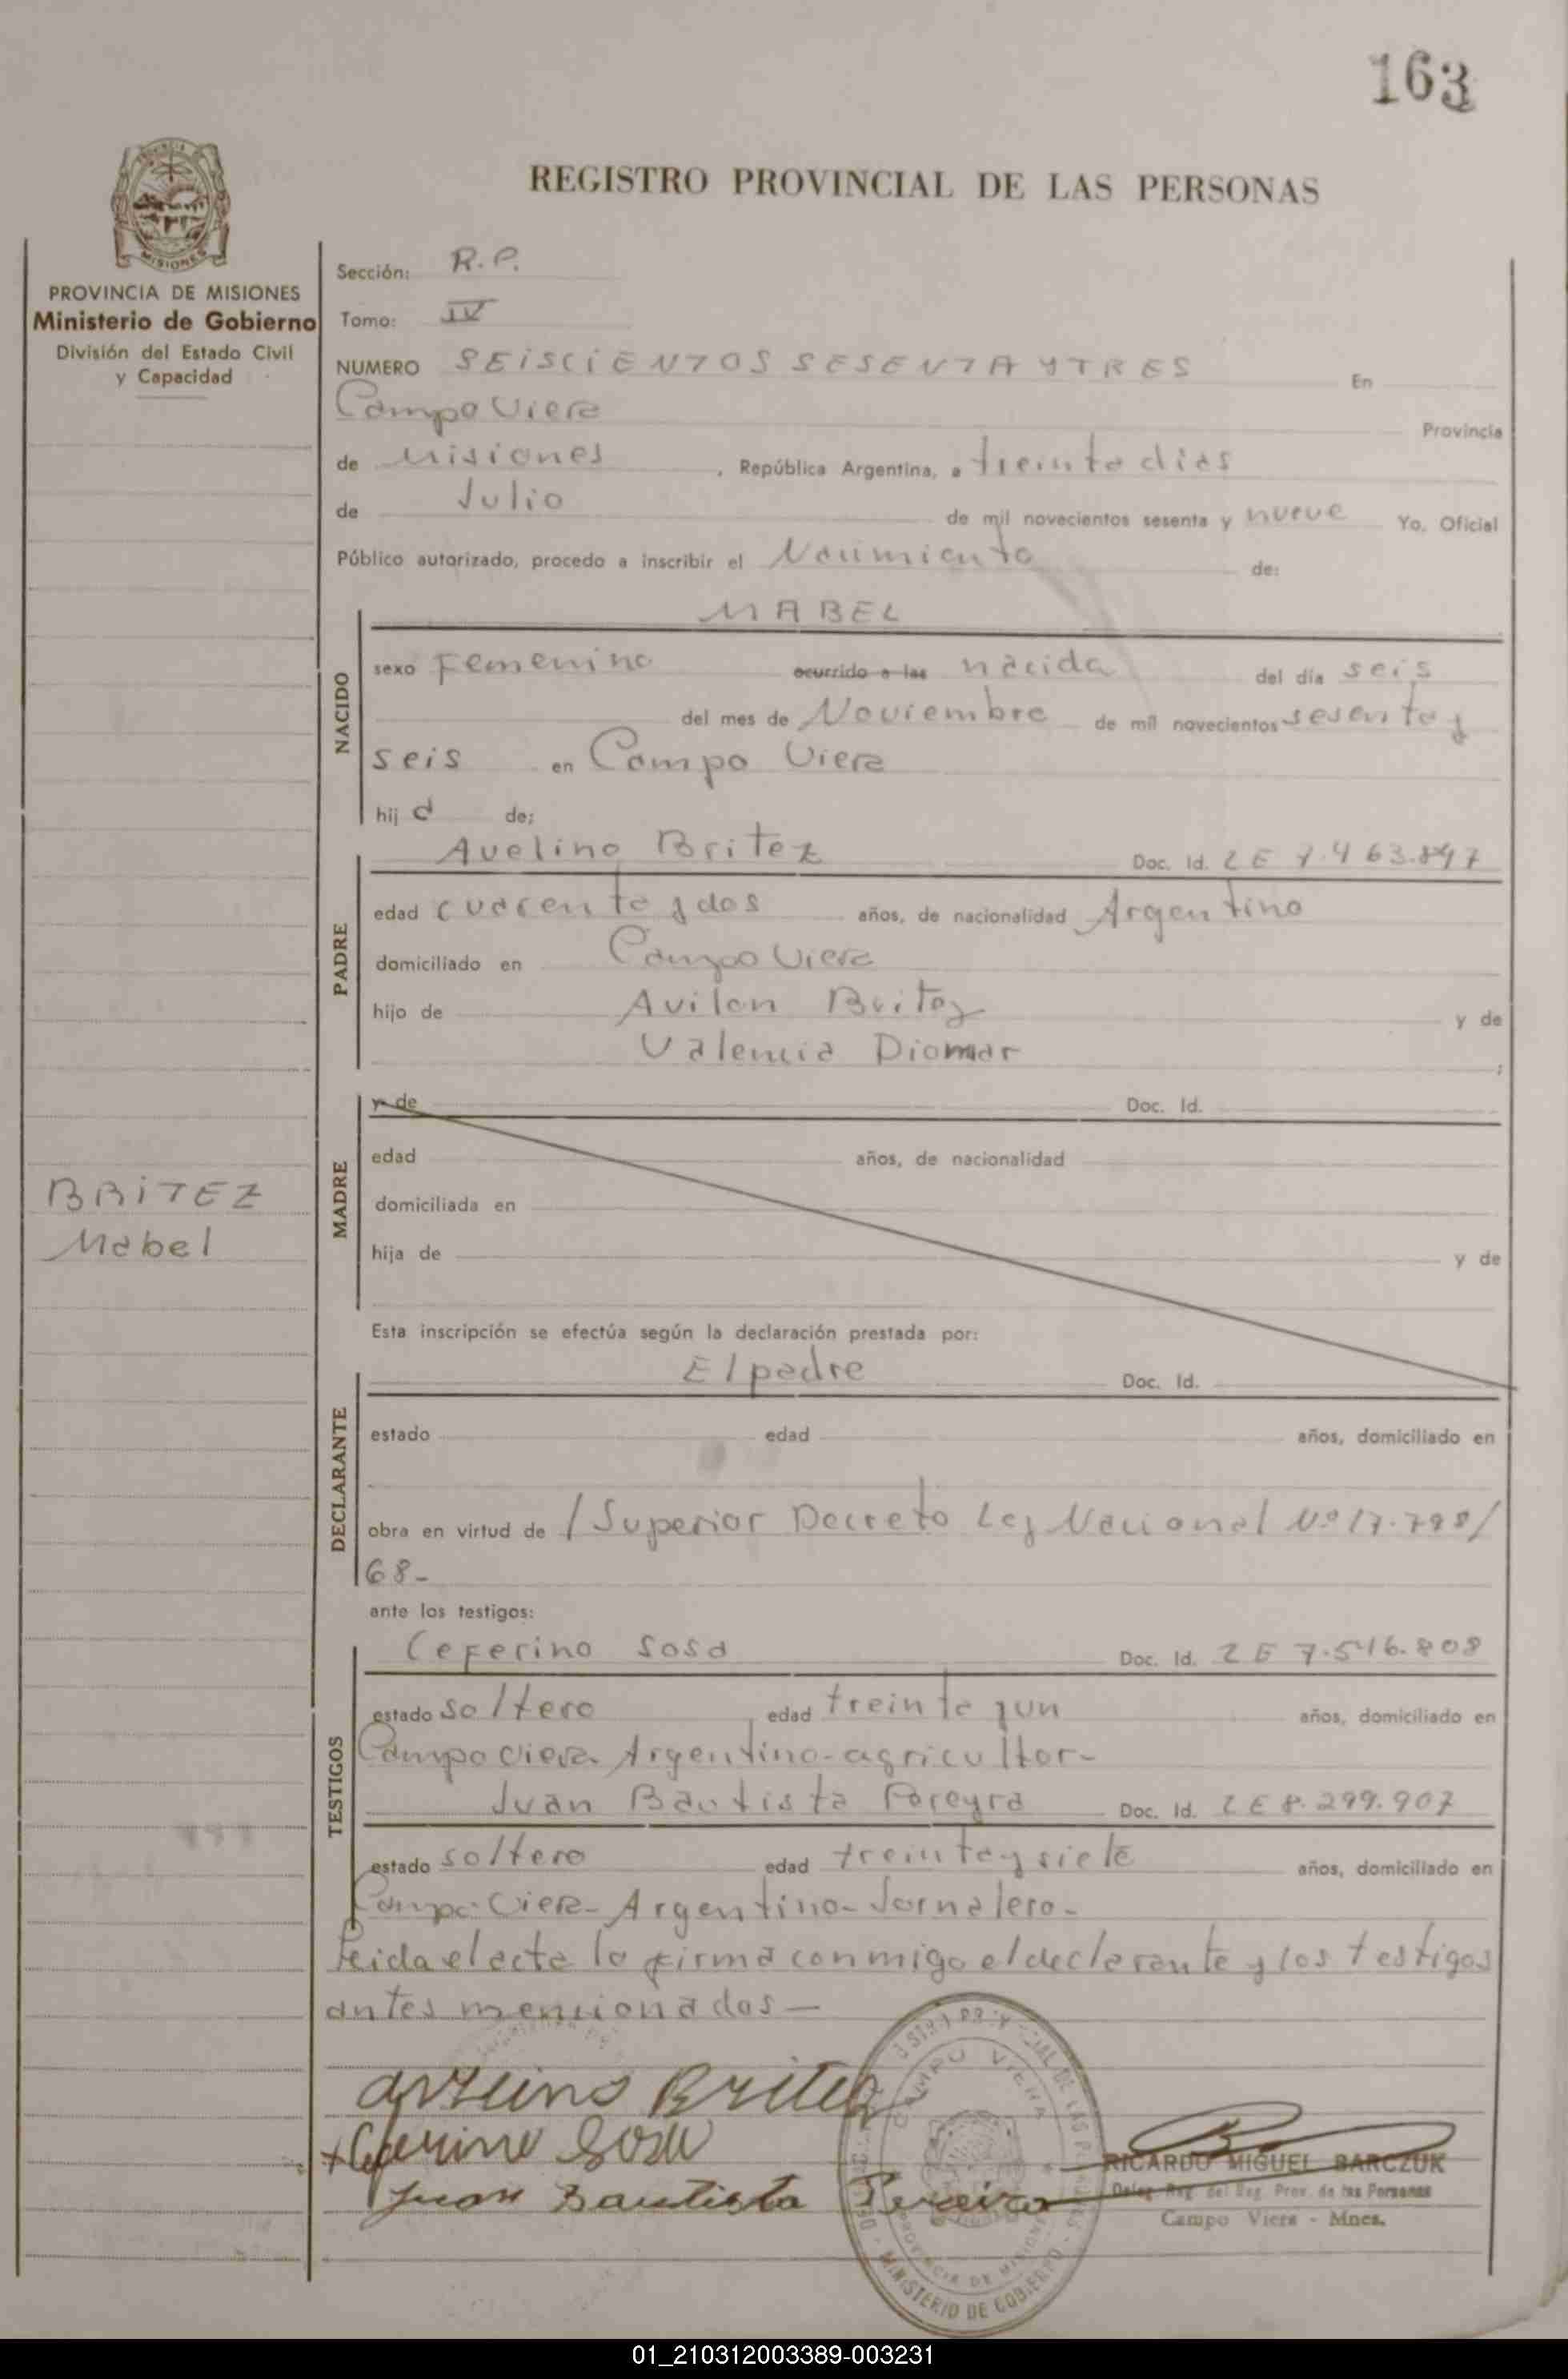 163
REGISTRO PROVINCIAL DE LAS PERSONAS
MISIONES
PROVINCIA DE MISIONES
Ministerio de Gobierno
División del Estado Civil
y Capacidad
Sección: R.P.
Tomo: IV
NUMERO SEISCIENTOS SESENTA Y TRES En
Campo Viera Provincia
de Misiones, República Argentina, a treinta dias
de Julio de mil novecientos sesenta y nueve Yo, Oficial
Público autorizado, procedo a inscribir el Nacimiento de:
MABEL
NACIDO
sexo Femenino ocurrido a las nacida del día seis
del mes de Noviembre de mil novecientos sesenta y
seis en Campo Viera
hija de:
Avelino Britez Doc. Id. LE 7.463.847
PADRE
edad cuarenta y dos años, de nacionalidad Argentino
domiciliado en Campo Viera
hijo de Avilon Britez y de
Valencia Diomar ;
MADRE
y de Doc. Id.
edad años, de nacionalidad
domiciliada en
hija de y de
BRITEZ
Mabel
Esta inscripción se efectúa según la declaración prestada por:
El padre Doc. Id.
DECLARANTE
estado edad años, domiciliado en
obra en virtud de / Superior Decreto Ley Nacional Nº 17.798/
68-
ante los testigos:
Ceferino Sosa Doc. Id. LE 7.546.808
TESTIGOS
estado soltero edad treinta y un años, domiciliado en
Campo Viera Argentino-agricultor-
Juan Bautista Pereyra Doc. Id. LE 8.299.907
estado soltero edad treinta y siete años, domiciliado en
Campo Viera- Argentino- Jornalero-
Leida el acta la firma conmigo el declarante y los testigos
antes mencionados-
Britez
Ceferino Sosa
Juan Bautista Pereira
CAMPO VIERA
PROVINCIA DE MISIONES
MINISTERIO DE GOBIERNO
RICARDO MIGUEL BARCZUK
Deleg. Reg. del Reg. Prov. de las Personas
Campo Viera - Mnes.
01_210312003389-003231